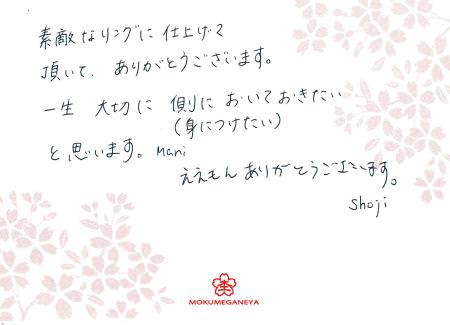 素敵なリングに仕上げて
頂いて、ありがとうございます。
一生 大切に 側に おいておきたい
(身につけたい)
と思います。Mani
ええもんありがとうございます。
Shoji
MOKUMEGANEYA